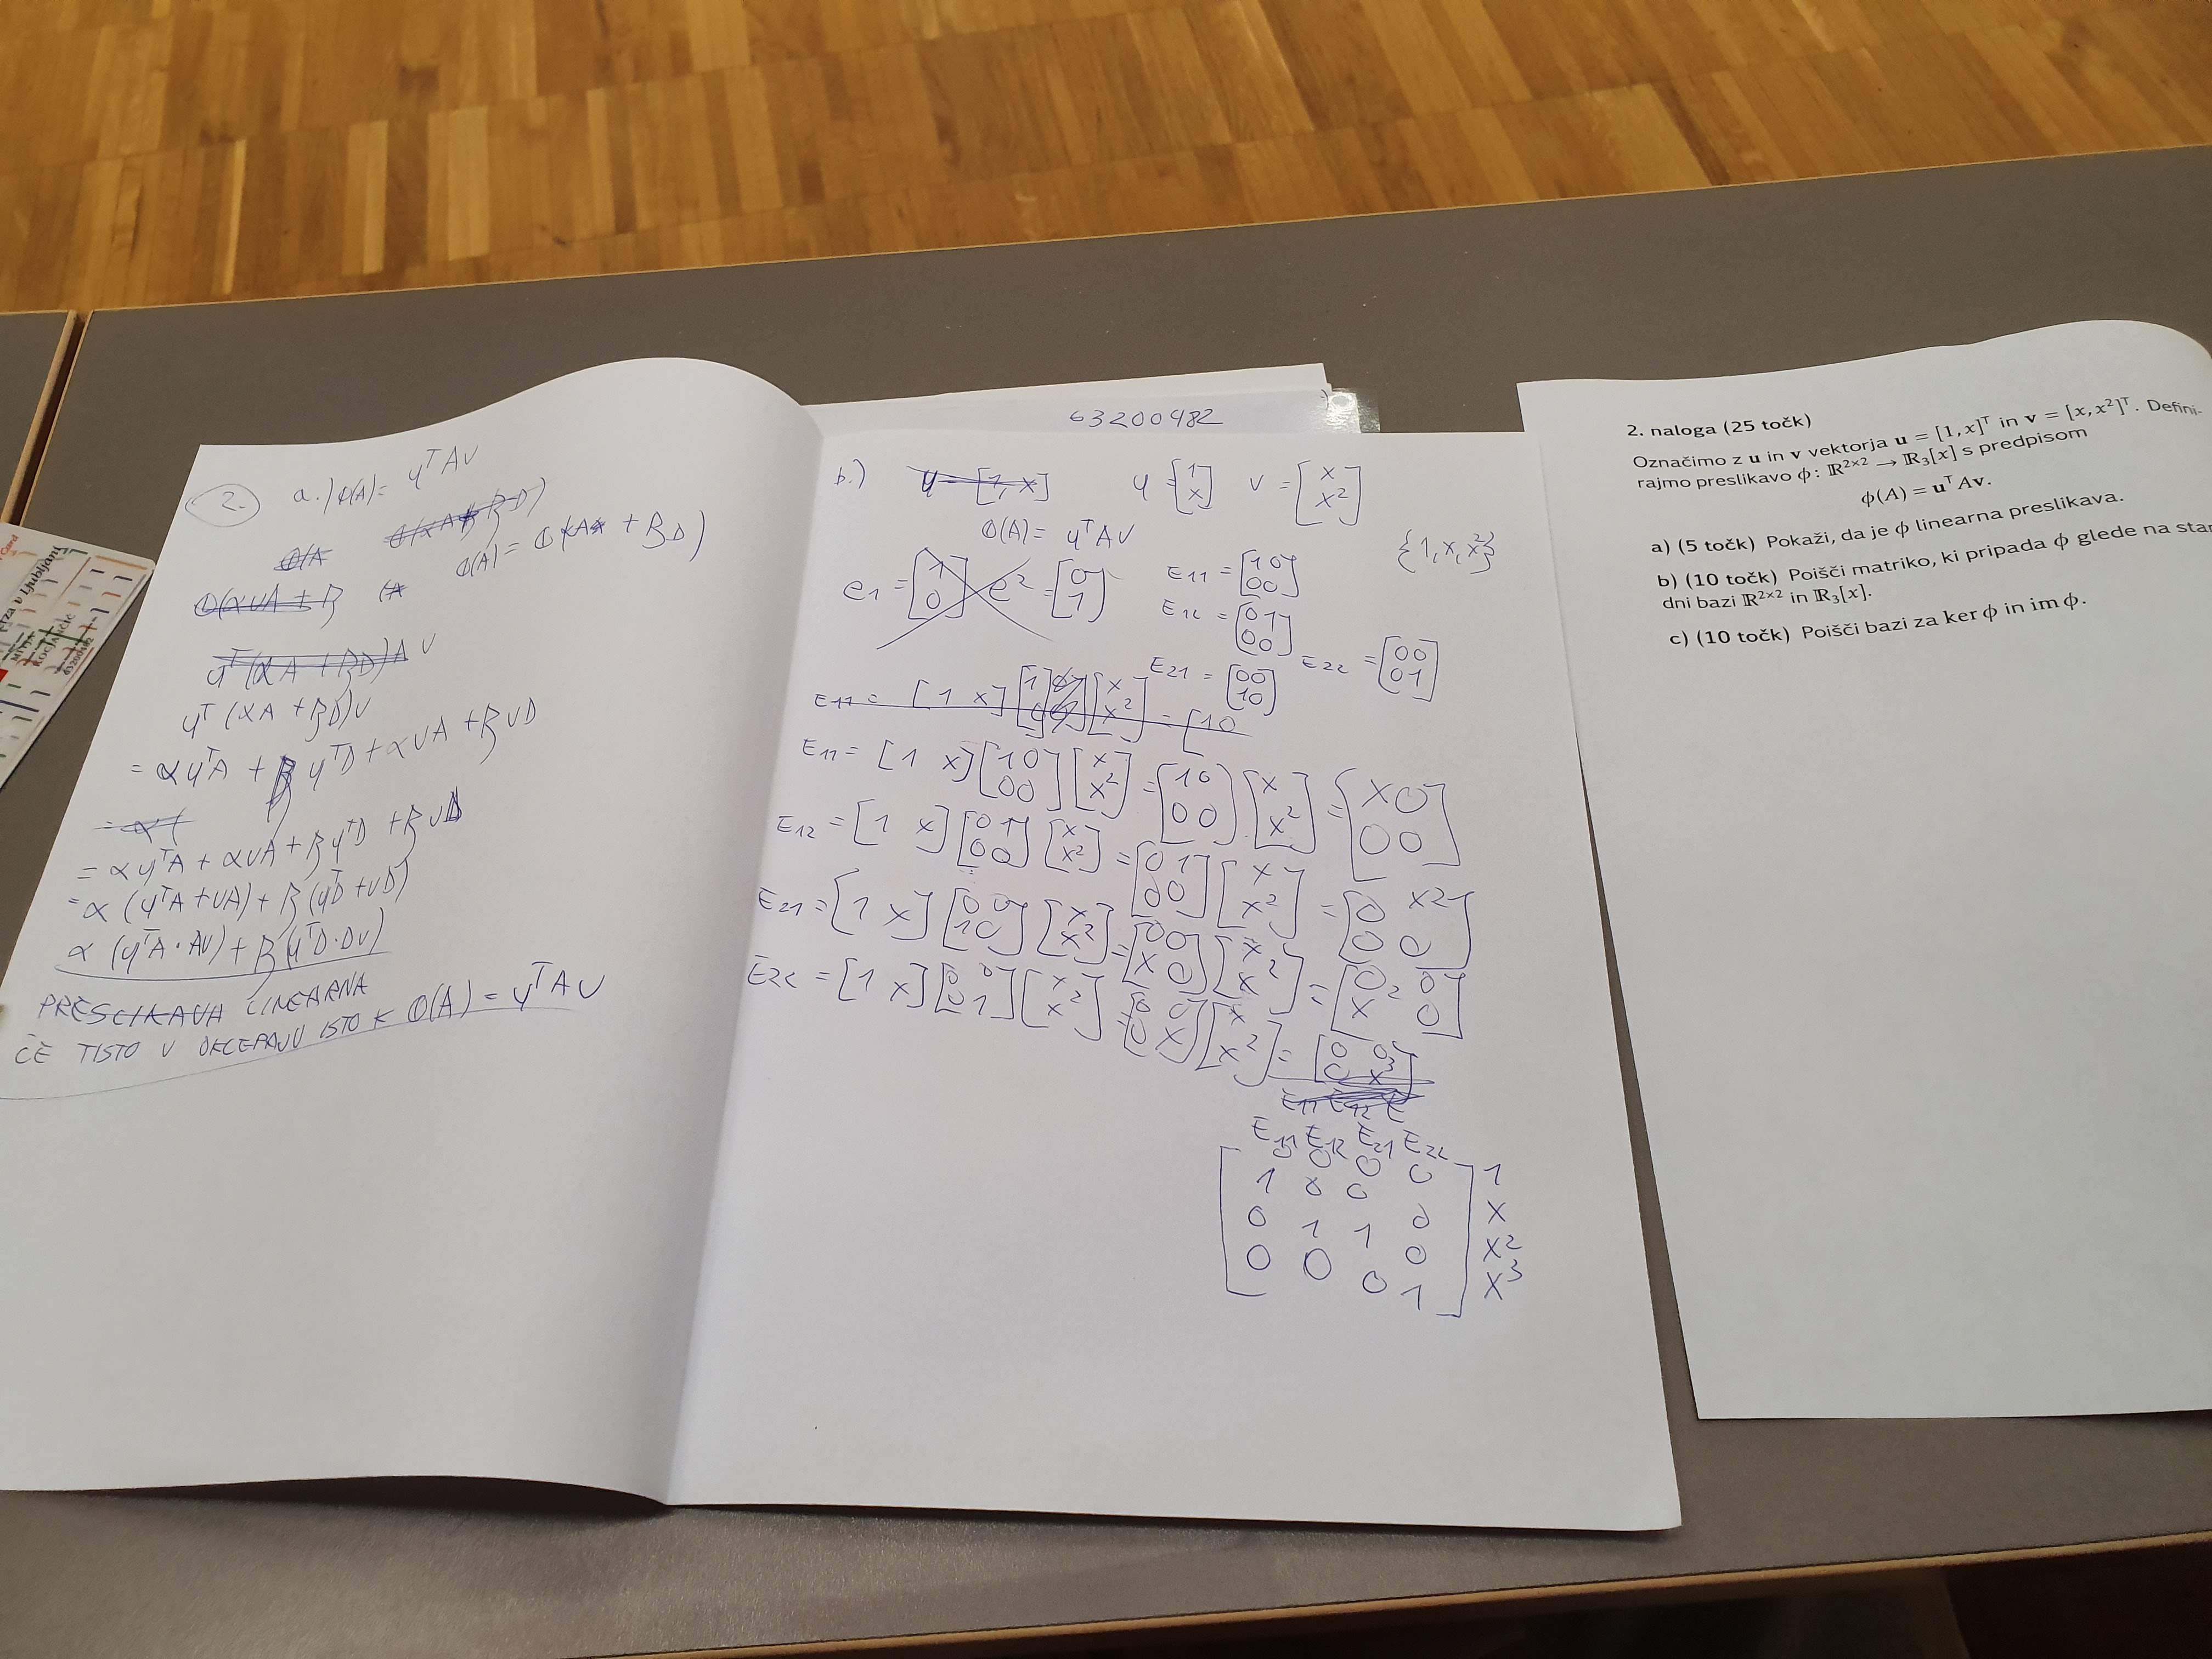 63200482
2. a.) φ(A) = uᵀAv
φ(A
φ(αA+βD)
φ(αvA+β (A φ(A) = φ(αA + βD)
uᵀ(αA+βD)A v
uᵀ(αA + βD)v
= αuᵀA + βuᵀD + αvA + βvD
= α(
= αuᵀA + αvA + βuᵀD + βvD
= α(uᵀA + vA) + β(uᵀD + vD)
α(uᵀA · Av) + β(uᵀD · Dv)
PRESLIKAVA LINEARNA
ČE TISTO V OKLEPAJU ISTO K φ(A) = uᵀAv
b.) u = [1, x] u = [1 x] v = [x x²]
φ(A) = uᵀAv {1, x, x²}
e1 = [1 0] e2 = [0 1] E11 = [1 0 0 0]
E12 = [0 1 0 0]
E21 = [0 0 1 0] E22 = [0 0 0 1]
E11 = [1 x] [x x²] = [10
E11 = [1 x] [1 0 0 0] [x x²] = [1 0 0 0] [x x²] = [x 0 0 0]
E12 = [1 x] [0 1 0 0] [x x²] = [0 1 0 0] [x x²] = [0 x2 0 0]
E21 = [1 x] [0 0 1 0] [x x²] = [0 0 x 0] [x x²] = [0 0 x² 0]
E22 = [1 x] [0 0 0 1] [x x²] = [0 0 0 x] [x x²] = [0 0 0 x³]
E11 E12 E
E11 E12 E21 E22
0 0 0 0 1
1 0 0 0 x
0 1 1 0 x²
0 0 0 1 x³
2. naloga (25 točk)
Označimo z u in v vektorja u = [1, x]ᵀ in v = [x, x²]ᵀ. Defini-
rajmo preslikavo ϕ: ℝ²ˣ² → ℝ₃[x] s predpisom
ϕ(A) = uᵀAv.
a) (5 točk) Pokaži, da je ϕ linearna preslikava.
b) (10 točk) Poišči matriko, ki pripada ϕ glede na stan
dni bazi ℝ²ˣ² in ℝ₃[x].
c) (10 točk) Poišči bazi za ker ϕ in im ϕ.
Card
rza v Ljubljani
63200482